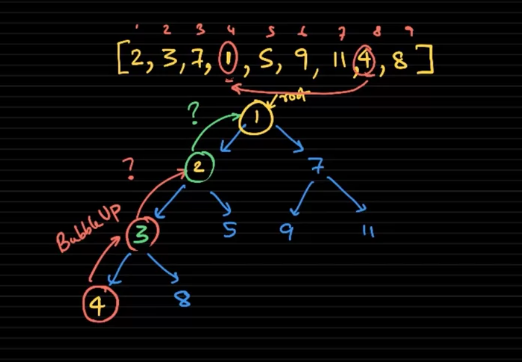 1 2 3 4 5 6 7 8 9
[2, 3, 7, 1, 5, 9, 11, 4, 8]
? 1 root
? 2 7
BubbleUP 3 5 9 11
4 8